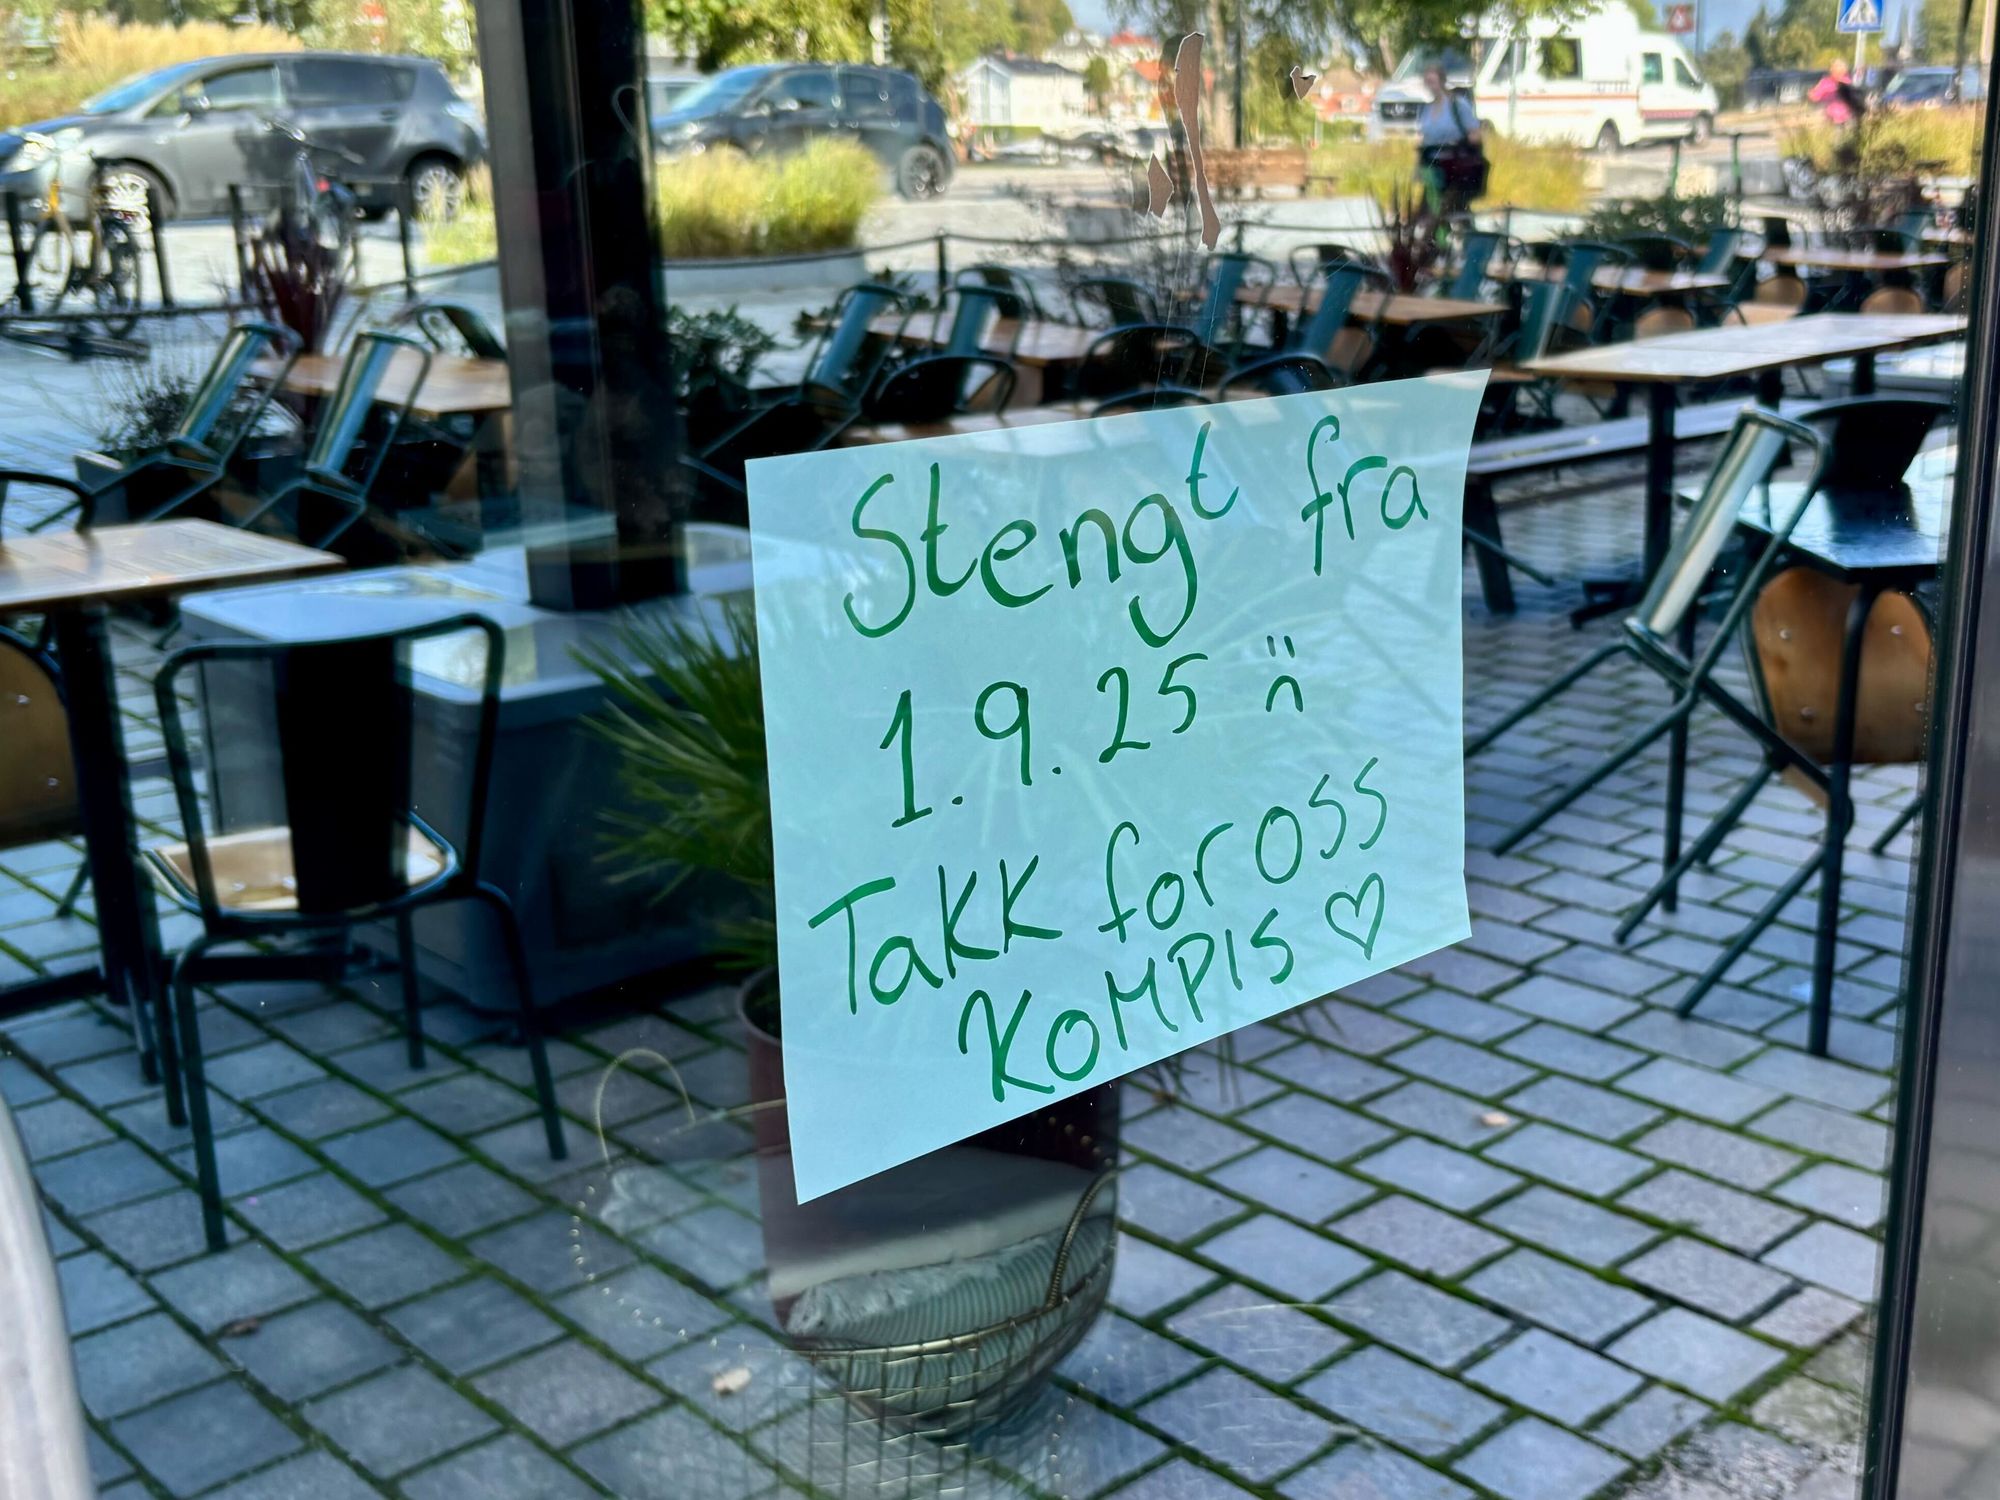 Stengt fra
1.9.25 :(
Takk for oss
KOMPIS ♡